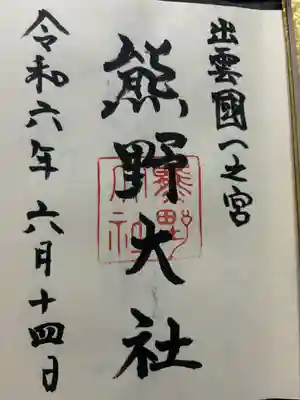 出雲國一之宮
熊野大社
令和六年六月十四日
熊野大社